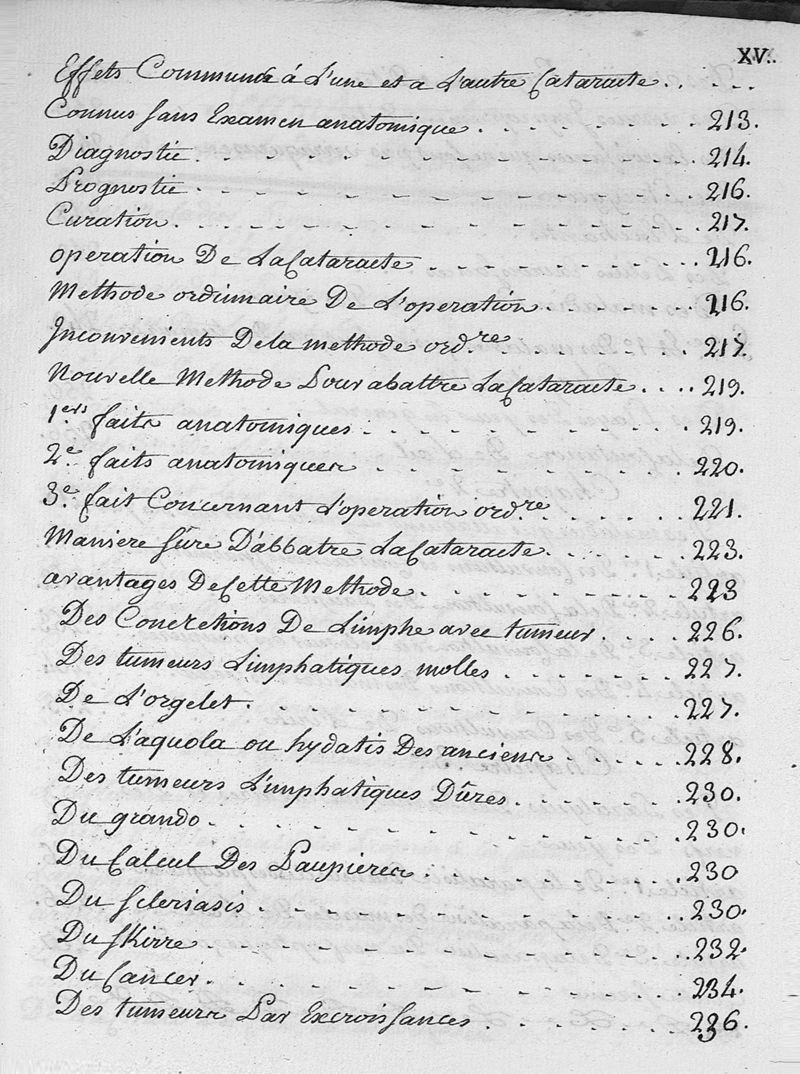 XV.
Effets Communs á L'une et a L'autre Cataracte
Connus sans Examen anatomique 213.
Diagnostic 214.
Prognostic 216
Curation 217.
operation De La Cataracte 216.
Methode ordinnaire De L'operation 216
Inconvenients De la methode ord.re 217.
Nouvelle Methode Pour abattre La Cataracte 219.
1ers faits anatomiques 219.
2e faits anatomiques 220.
3e fait Concernant L'operation ord.re 221.
Maniere sûre D'abbatre La Cataracte 223.
avantages De Cette Methode 223
Des Concretions De Limphe avec tumeur 226.
Des tumeurs Limphatiques molles 227.
De L'orgelet 227.
De L'aquola ou hydatis Des anciens 228.
Des tumeurs Limphatiques Dûres 230.
Du grando 230.
Du Calcul Des Paupieres 230
Du scleriasis 230.
Du Skirre 232.
Du Cancer 234.
Des tumeurs Par Excroissances 236.